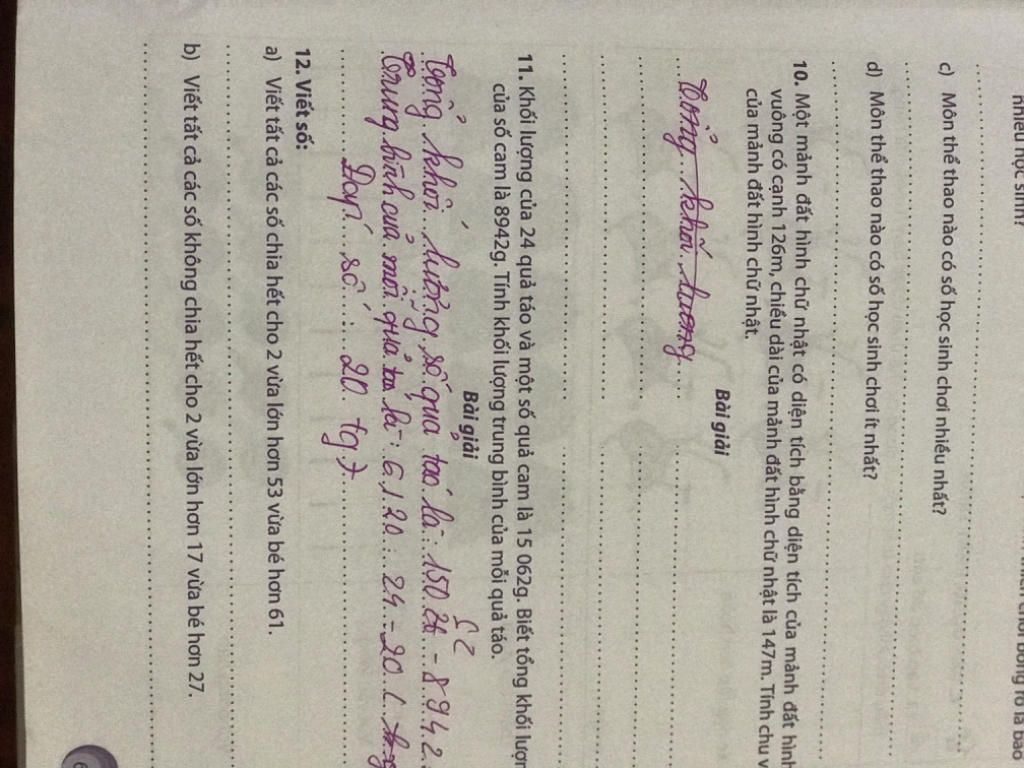 nhiều học sinh?
c) Môn thể thao nào có số học sinh chơi nhiều nhất?
d) Môn thể thao nào có số học sinh chơi ít nhất?
10. Một mảnh đất hình chữ nhật có diện tích bằng diện tích của mảnh đất hình
vuông có cạnh 126m, chiều dài của mảnh đất hình chữ nhật là 147m. Tính chu v
của mảnh đất hình chữ nhật.
Bài giải
tổng khối lương
11. Khối lượng của 24 quả táo và một số quả cam là 15 062g. Biết tổng khối lượn
của số cam là 8942g. Tính khối lượng trung bình của mỗi quả táo.
Bài giải
tổng khối lượng số quả táo là: 150 - 8942
62
trung bình của mỗi quả táo là: 6120 : 24 = 20 (
Đáp số: 20
12. Viết số:
a) Viết tất cả các số chia hết cho 2 vừa lớn hơn 53 vừa bé hơn 61.
b) Viết tất cả các số không chia hết cho 2 vừa lớn hơn 17 vừa bé hơn 27.